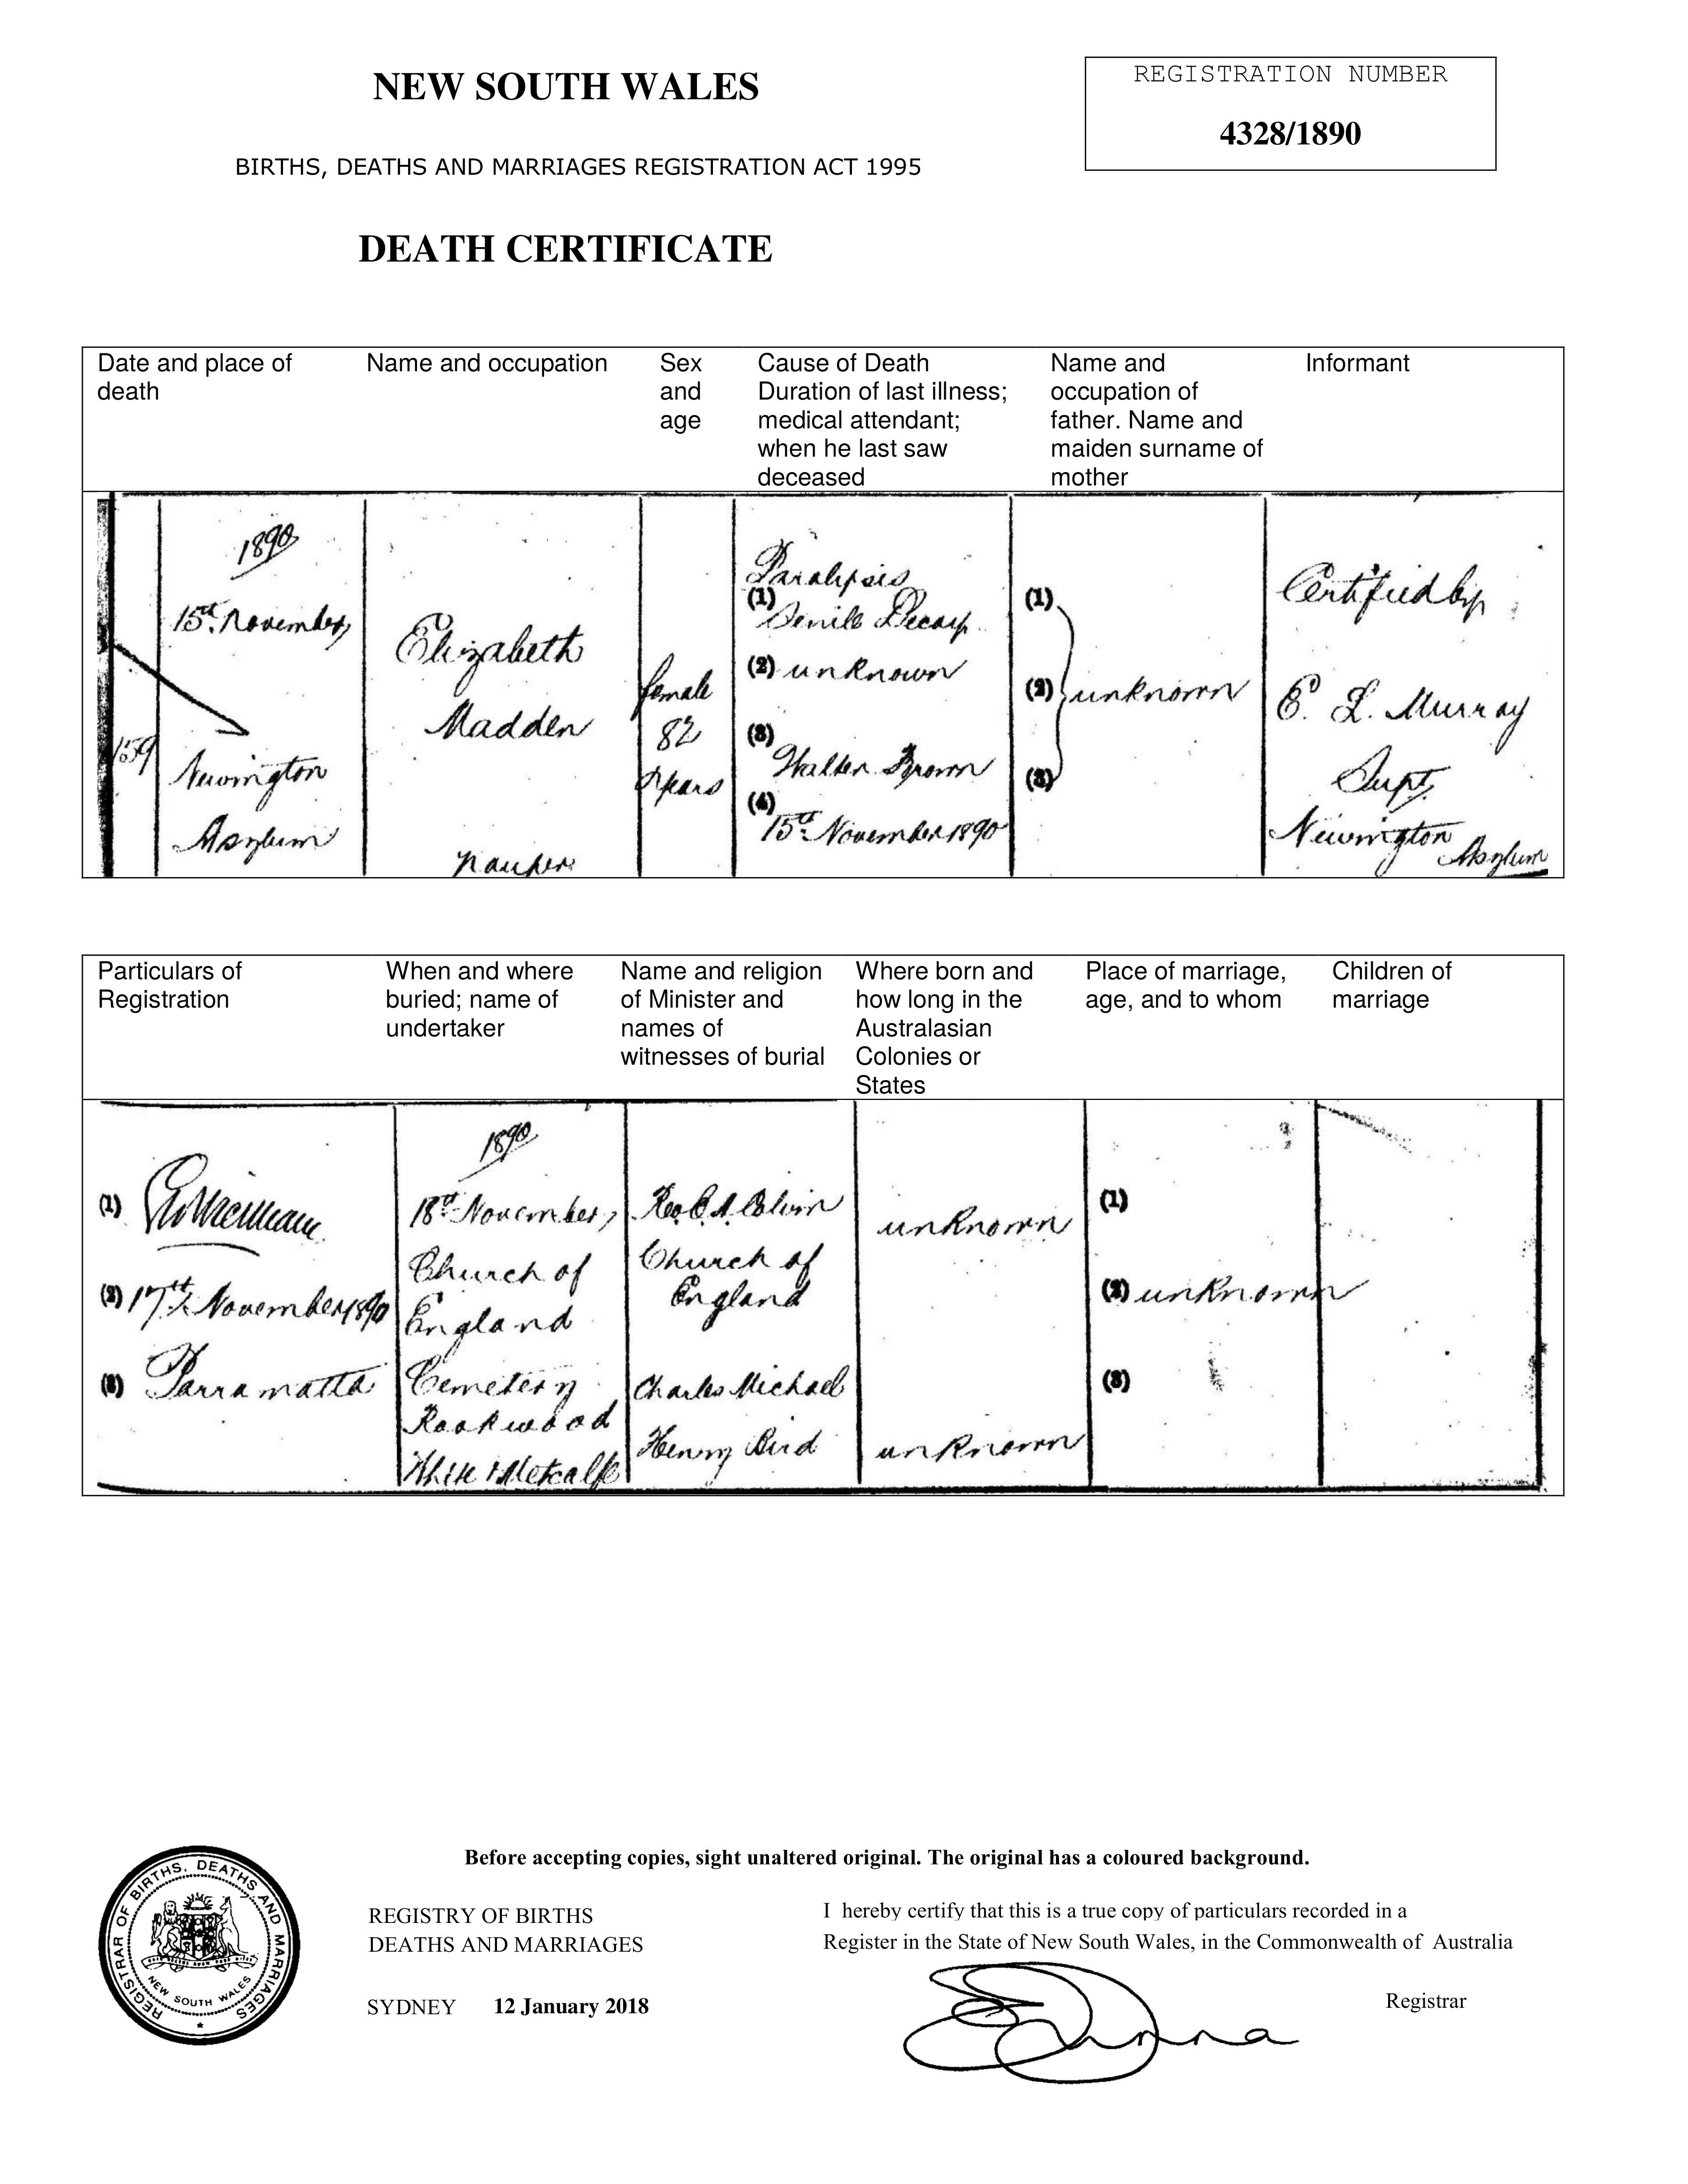 NEW SOUTH WALES
BIRTHS, DEATHS AND MARRIAGES REGISTRATION ACT 1995
DEATH CERTIFICATE
REGISTRATION NUMBER
4328/1890
Date and place of death
Name and occupation
Sex and age
Cause of Death Duration of last illness; medical attendant; when he last saw deceased
Name and occupation of father. Name and maiden surname of mother
Informant
159
1890
15th November,
Newington
Asylum
Elizabeth
Madden
Pauper
female
82
years
Paralysis
(1)
Senile Decay
(2) unknown
(3)
Walter Brown
(4)
15th November 1890
(1)
(2) unknown
(3)
Certified by
E. L. Murray
Supt,
Newington
Asylum
Particulars of Registration
When and where buried; name of undertaker
Name and religion of Minister and names of witnesses of burial
Where born and how long in the Australasian Colonies or States
Place of marriage, age, and to whom
Children of marriage
(1)
(2) 17th November 1890
(3) Parramatta
1890
18th November,
Church of
England
Cemetery
Rookwood
White & Metcalfe
Rev. C. A. Colvin
Church of
England
Charles Michael
Henry Bird
unknown
unknown
(1)
(2) unknown
(3)
Before accepting copies, sight unaltered original. The original has a coloured background.
REGISTRAR OF BIRTHS, DEATHS AND MARRIAGES
NEW SOUTH WALES
REGISTRY OF BIRTHS
DEATHS AND MARRIAGES
SYDNEY 12 January 2018
I hereby certify that this is a true copy of particulars recorded in a
Register in the State of New South Wales, in the Commonwealth of Australia
Registrar